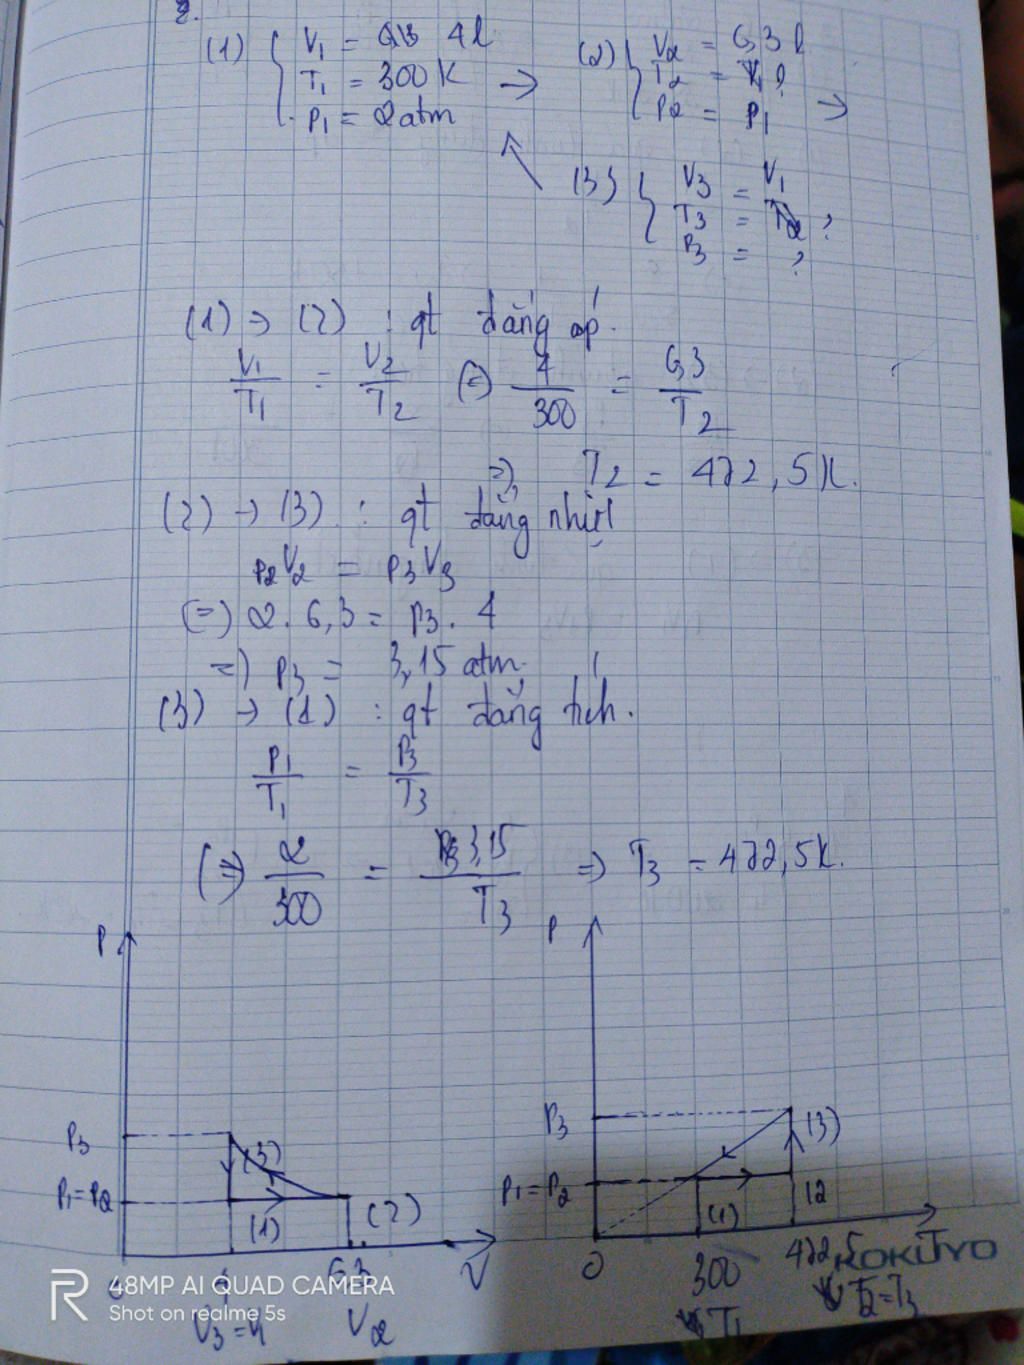 2.
(1) { V1 = 4l
T1 = 300K →
P1 = 2atm
(2) { V2 = 6,3 l
T2 = ?
P2 = P1 →
(3) { V3 = V1
T3 = ?
P3 = ?
(1) → (2) : qt đẳng áp.
V1/T1 = V2/T2 (=) 4/300 = 6,3/T2
=> T2 = 472,5K.
(2) → (3) : qt đẳng nhiệt
P2V2 = P3V3
(=) 2. 6,3 = P3. 4
=) P3 = 3,15 atm.
(3) → (1) : qt đẳng tích.
P1/T1 = P3/T3
(=) 2/300 = 3,15/T3 => T3 = 472,5K.
P
P3
P1 = P2
(3)
(1)
(2)
0
4
6,3
V
V3 = 4
V2
P
P3
P1 = P2
(3)
(1)
(2
0
300
472,5
T1
T2 = T3
KOKUYO
R
48MP AI QUAD CAMERA
Shot on realme 5s